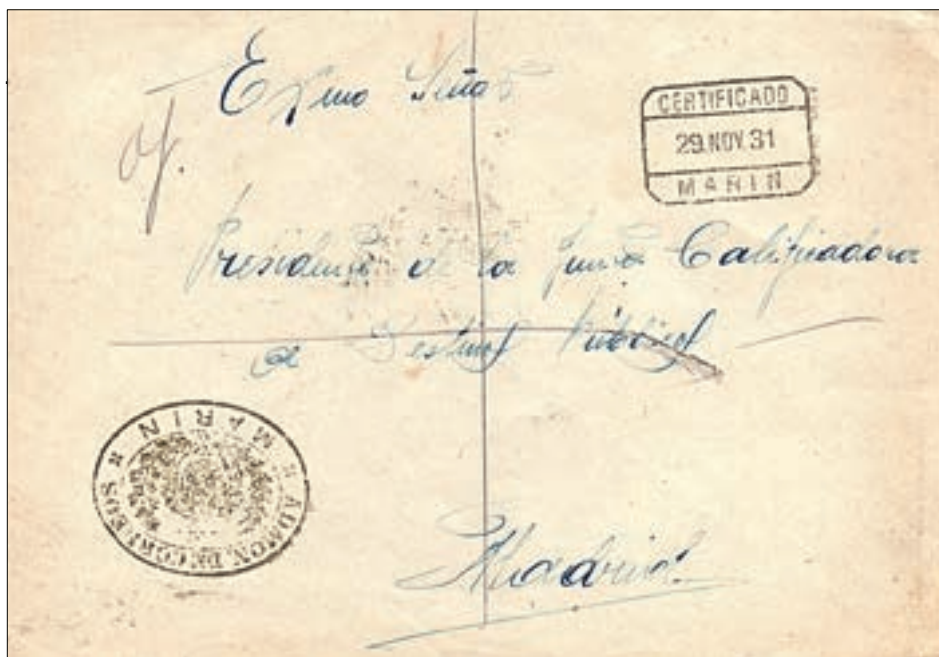 Exmo Señor
of.
CERTIFICADO
29.NOV.31
MARIN
Presidente de la Junta Calificadora
de Destinos Públicos
ADMON. DE CORREOS
MARIN
Madrid